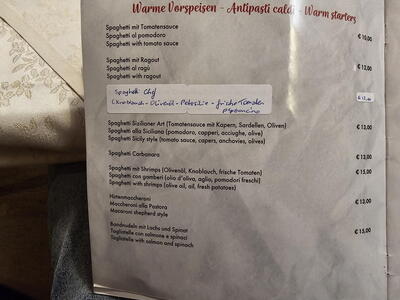 Warme Vorspeisen - Antipasti caldi - Warm starters
Spaghetti mit Tomatensauce
Spaghetti al pomodoro € 10,00
Spaghetti with tomato sauce
Spaghetti mit Ragout
Spaghetti al ragù € 12,00
Spaghetti with ragout
Spaghetti Chef
(Knoblauch - Olivenöl - Petersilie - frische Tomaten
Peperoncino
Spaghetti Sizilianer Art (Tomatensauce mit Kapern, Sardellen, Oliven) € 13,00
Spaghetti alla Siciliana (pomodoro, capperi, acciughe, olive)
Spaghetti Sicily style (tomato sauce, capers, anchovies, olives)
Spaghetti Carbonara € 13,00
Spaghetti mit Shrimps (Olivenöl, Knoblauch, frische Tomaten) € 15,00
Spaghetti con gamberi (olio d'oliva, aglio, pomodori freschi)
Spaghetti with shrimps (olive oil, oil, fresh potatoes)
Hirtenmaccheroni
Maccheroni alla Pastora € 13,00
Macaroni shepherd style
Bandnudeln mit Lachs und Spinat
Tagliatelle con salmone e spinaci € 15,00
Tagliatelle with salmon and spinach